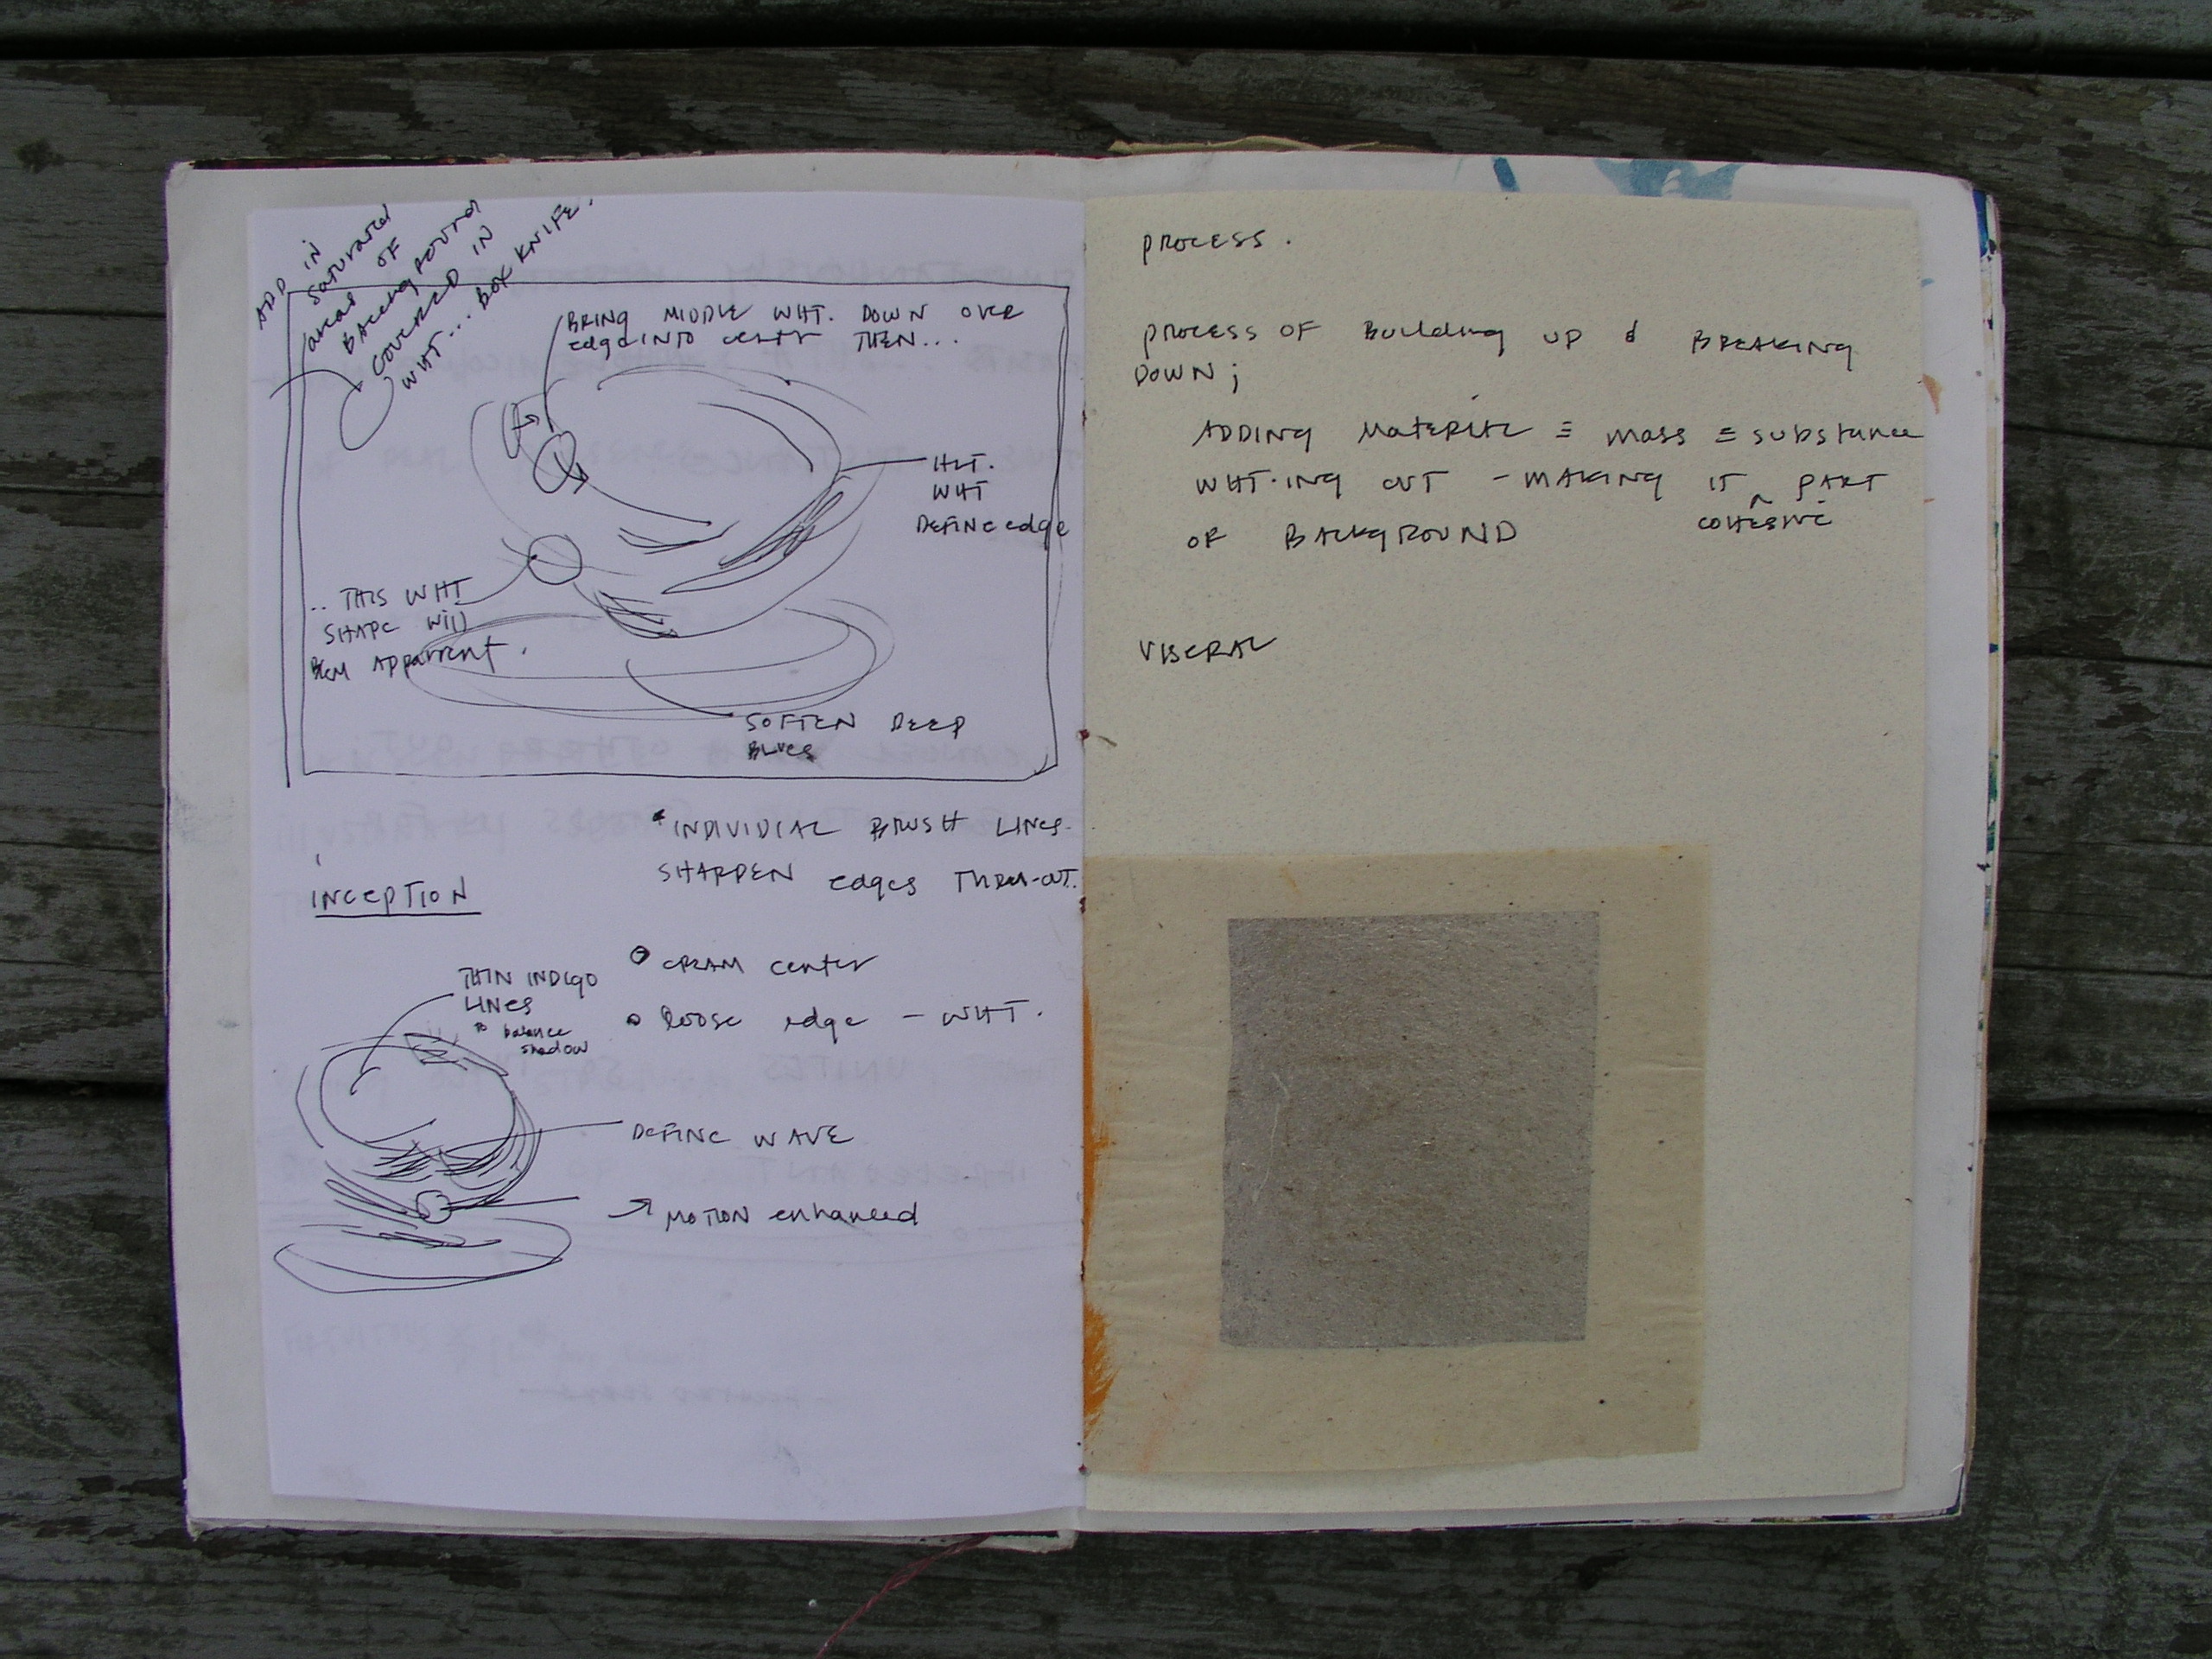 ADD IN
SATURATED
AREAS OF
BACKGROUND
COVERED IN
WHT... BOX KNIFE.
BRING MIDDLE WHT. DOWN OVER
edge INTO center THEN...
WHT
DEFINE edge
.. THIS WHT
SHAPE Will
BCM APParrent.
SOFTEN DEEP
BLUES
* INDIVIDIAL BRUSH LINES.
SHARPEN edges THRU-OUT.
INCEPTION
THIN INDIGO
LINES
to balance
shadow
CRAM center
loose edge - WHT.
DEFINE WAVE
→ MOTION enhanced
PROCESS.
PROCESS OF Building UP & BREAKING
DOWN;
ADDING MATERIAL ≡ MASS ≡ substance
WHT.ING OUT - MAKING IT ^ PART
COHESIVE
OF BACKGROUND
VISCRAL